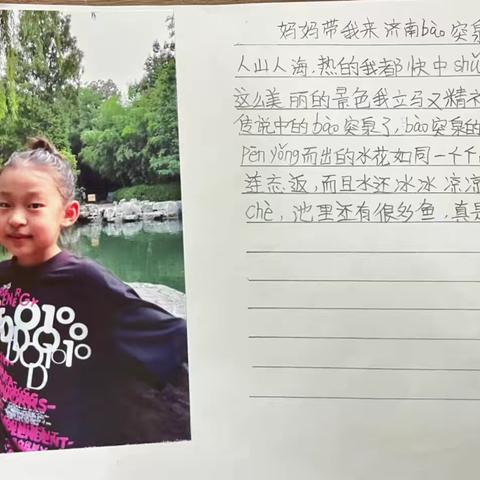 妈妈带我来济南bào突泉
人山人海,热的我都快中shǔ
这么美丽的景色我立马又精神
传说中的bào突泉了,bào突泉的
pēn yǒng而出的水花如同一个个
连忘返,而且水还冰冰凉凉
chè,池里还有很多鱼,真是